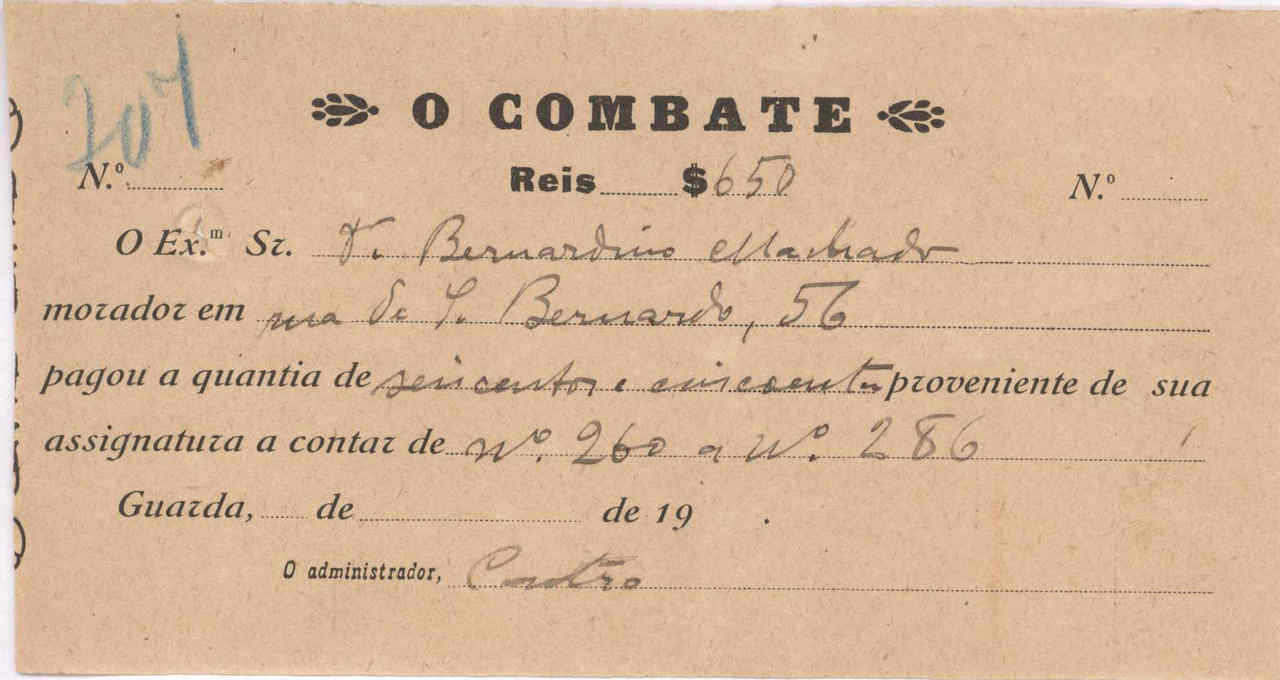 207
O COMBATE
N.º Reis $650 N.º
O Ex.m Sr. Dr. Bernardino Machado
morador em rua de S. Bernardo, 56
pagou a quantia de seiscentos e cincoenta proveniente de sua
assignatura a contar de Nº. 260 a Nº. 286
Guarda, de de 19 .
O administrador, Castro